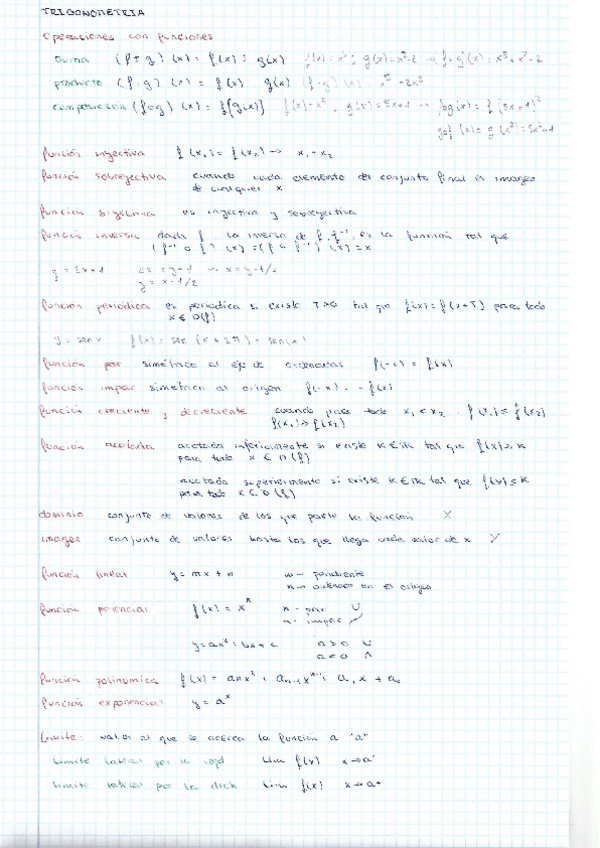 TRIGONOMETRIA
Operaciones con funciones
suma (f+g)(x) = f(x) + g(x)
producto (f·g)(x) = f(x) · g(x)
composicion (fog)(x) = f{g(x)}
función inyectiva f(x₁) = f(x₂) → x₁ = x₂
función sobreyectiva cuando cada elemento del conjunto final es imagen
de cualquier x
función biyectiva es inyectiva y sobreyectiva
función inversa dada f, la inversa de f, f⁻¹, es la función tal que
(f⁻¹ o f)(x) = (f o f⁻¹)(x) = x
y = 2x+1 2x = y-1 → x = y-1/2
y = x-1/2
función periódica es periodica si existe T>0 tal que f(x) = f(x+T) para todo
x ∈ D(f)
y = sen x f(x) = sen (x + 2π) = sen(x)
función par simétrica al eje de ordenadas f(-x) = f(x)
función impar simetrica al origen f(-x) = -f(x)
función creciente y decreciente cuando para todo x₁ < x₂
f(x₁) > f(x₂)
función acotada acotada inferiormente si existe K ∈ ℝ tal que f(x) ≥ K
para todo x ∈ D(f)
acotada superiormente si existe K ∈ ℝ tal que f(x) ≤ K
para todo x ∈ D(f)
dominio conjunto de valores de los que parte la función X
imagen conjunto de valores hasta los que llega cada valor de x Y
función lineal y = mx + n m → pendiente
n → ordenada en el origen
función potencial f(x) = xⁿ n - par ∪
n - impar
y = ax² + bx + c a > 0 ∪
a < 0 ∩
función polinomica
función exponencial y = aˣ
Limite: valor al que se acerca la función a "a"
Limite lateral por la izqd lim f(x) x→a⁻
Limite lateral por la drch lim f(x) x→a⁺